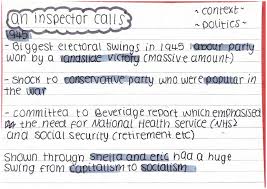 an inspector calls
~context~
~politics~
1945
- Biggest electoral swings in 1945 labour party
won by a landslide victory (massive amount)
- Shock to conservative party who were popular in
the war
- committed to Beveridge report which emphasised
the need for National Health Service (NHS)
and social security (retirement etc)
Shown through sheila and eric had a huge
swing from capitalism to socialism